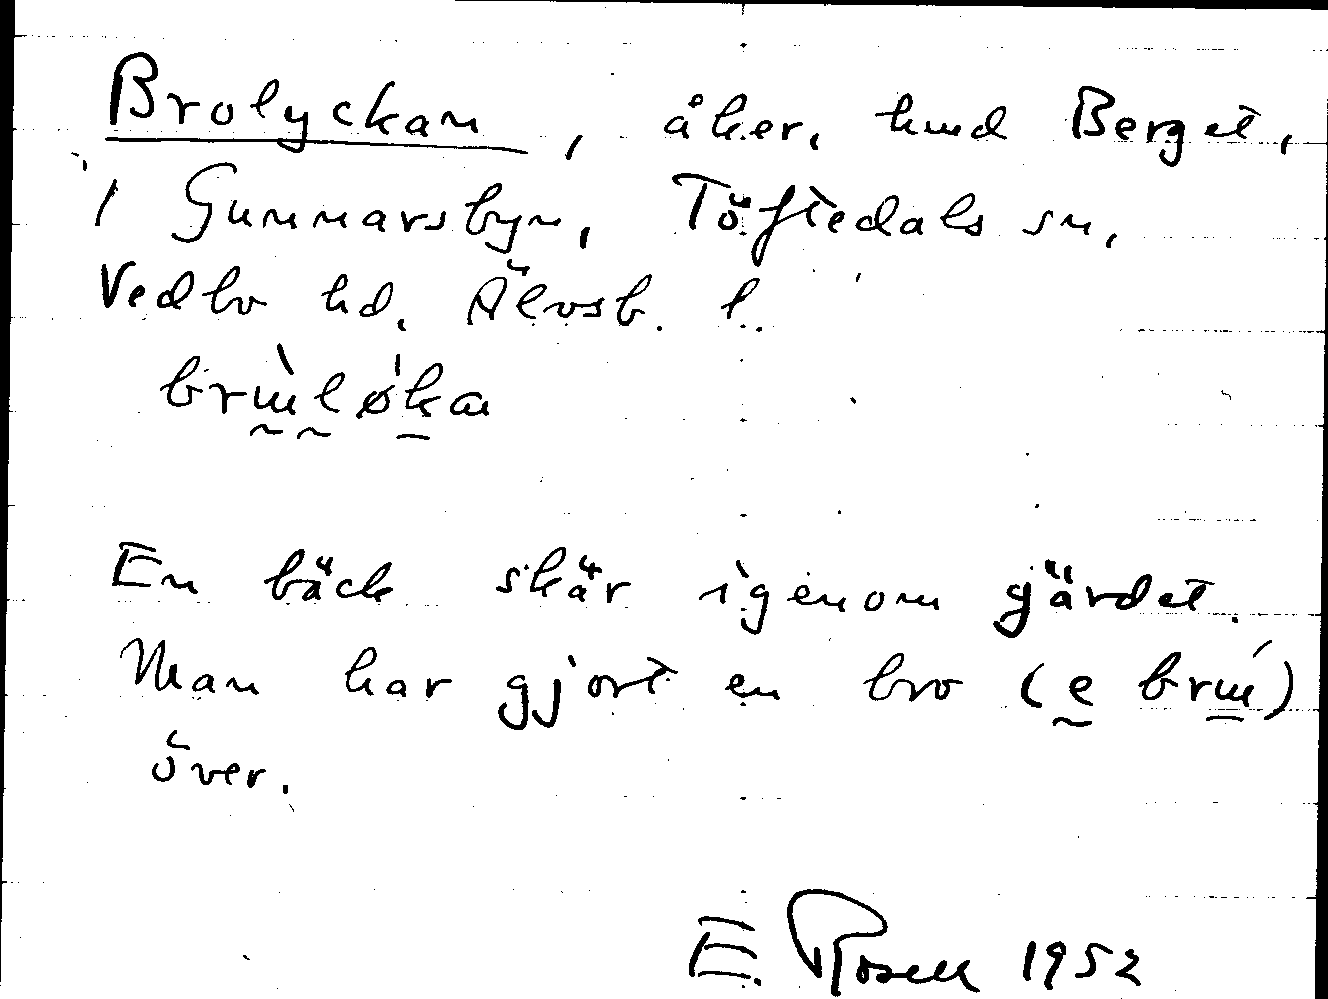 Brolyckan, åker, hmd Berget,
1 Gunnarsbyn, Töftedals sn,
Vedbo hd. Älvsb. l.
brɯ̀løkan
En bäck skär igenom gärdet.
Man har gjort en bro (e brɯ́)
över.
E. Rosell 1952